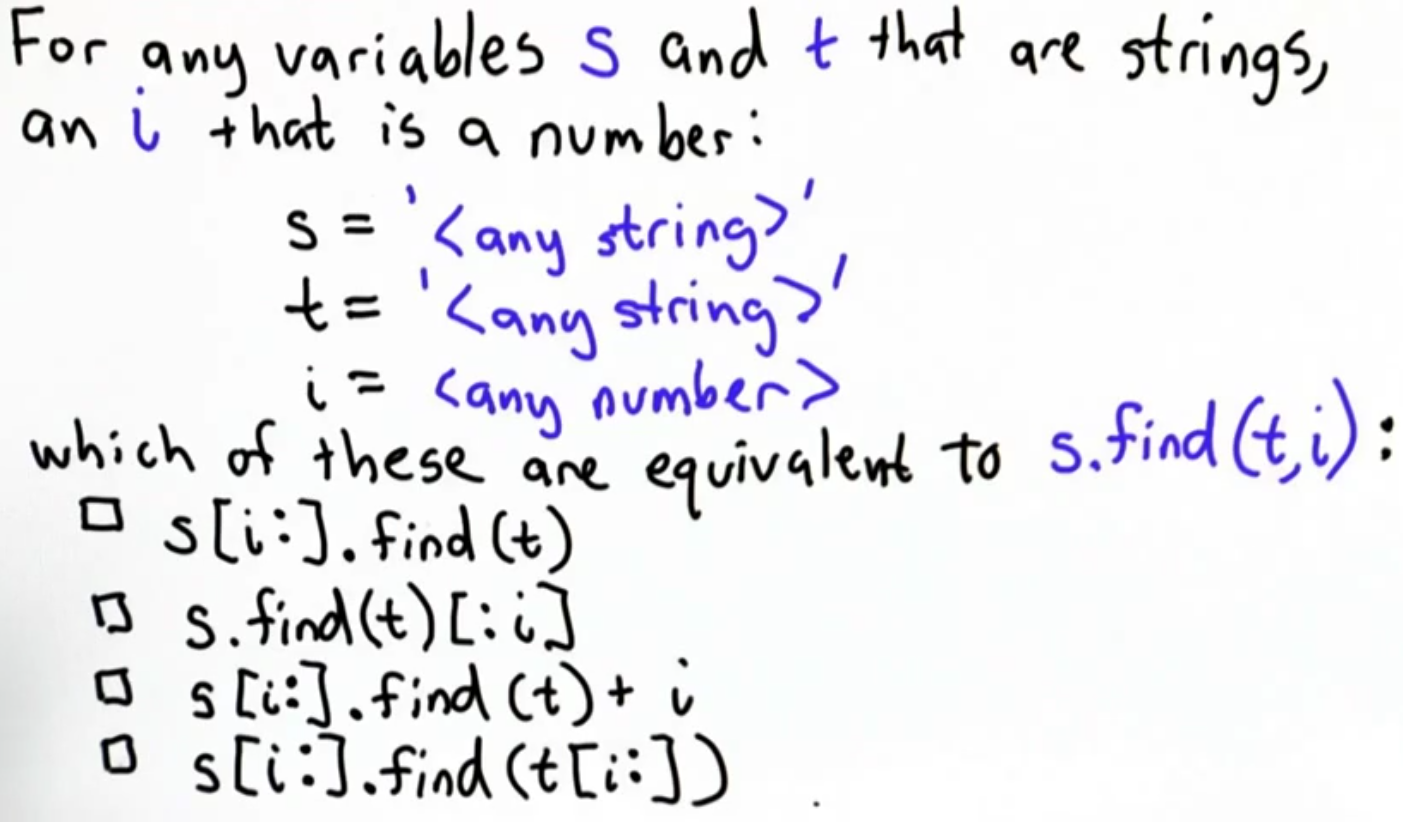 For any variables s and t that are strings,
an i that is a number:
s = '<any string>'
t = '<any string>'
i = <any number>
which of these are equivalent to s.find(t,i):
□ s[i:].find(t)
□ s.find(t)[:i]
□ s[i:].find(t) + i
□ s[i:].find(t[i:])